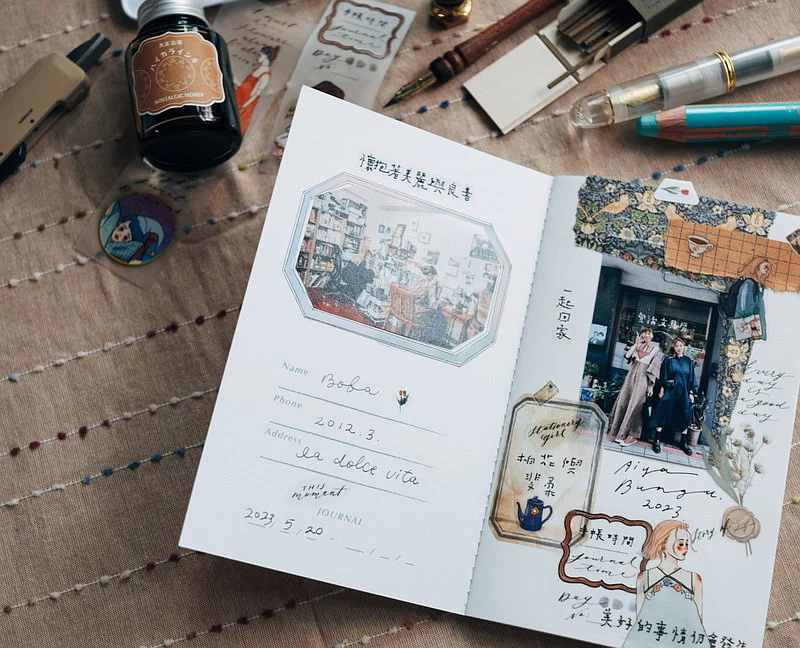 NOSTALGIC HONEY
手帳時間
Journal time
Day
懷抱著美麗與良善
Name Boba
Phone 2012.3.
Address la dolce vita
THIS moment
JOURNAL
2023, 5, 20.
一起回家
every day is a good day
Stationery Girl
Aiya
Bungu.
2023
手帳時間
Journal time
Day
No.
美好的事情仍會發生